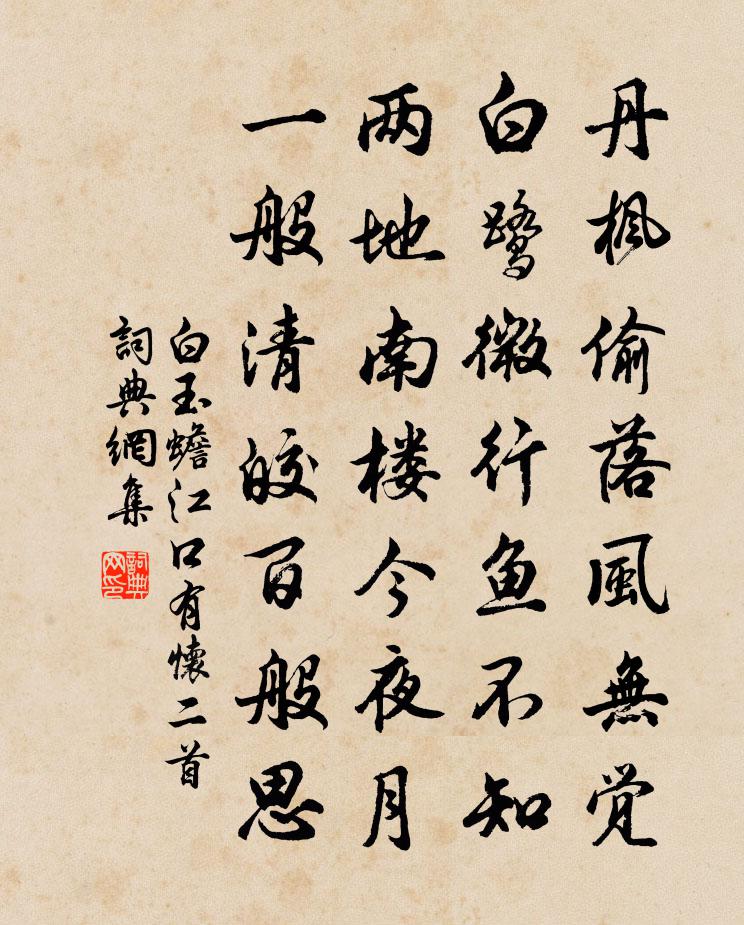 丹枫偷落風無覚
白鹭微行鱼不知
两地南楼今夜月
一般清皎百般思
白玉蟾江口有懷二首
詞典網集
詞典网印